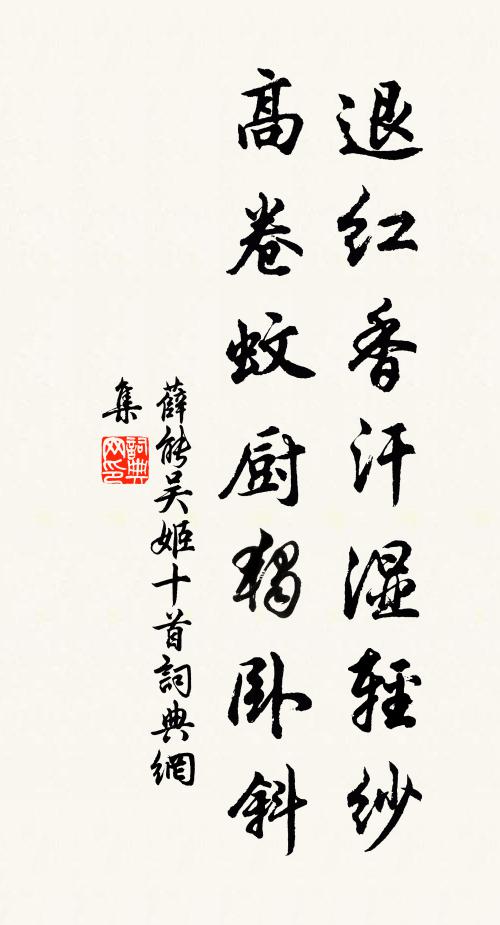 退红香汗湿轻纱
高卷蚊厨独卧斜
薛能吴姬十首詞典網
集
詞典
网印